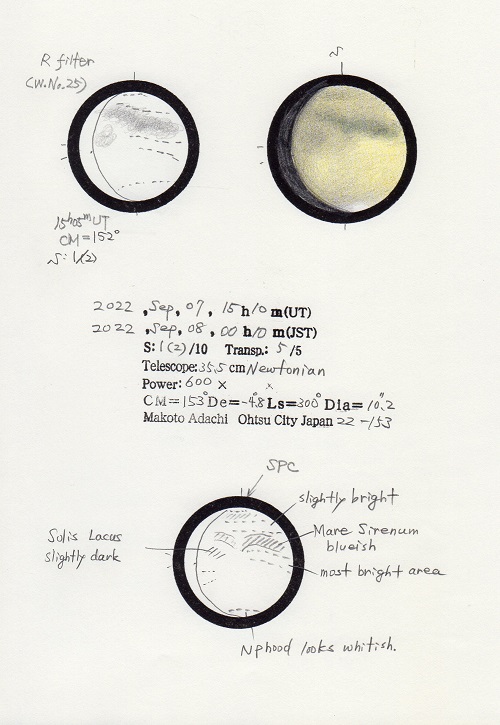 R filter
(W.No.25)
15h05m UT
CM=152°
S:1(2)
2022 ,Sep, 07, 15 h 10 m(UT)
2022 ,Sep, 08, 00 h 10 m(JST)
S: 1(2) /10 Transp.: 5 /5
Telescope: 35.5 cm Newtonian
Power: 600 ×
CM=153° De=-4.8° Ls=300° Dia=10."2
Makoto Adachi Ohtsu City Japan 22-153
SPC
slightly bright
Mare Sirenum
blueish
most bright area
Solis Lacus
slightly dark
N phood looks whitish.